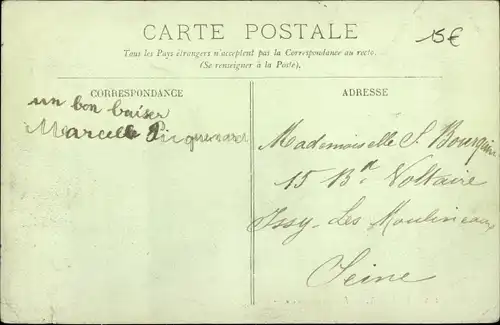 CARTE POSTALE
15€
Tous les Pays étrangers n'acceptent pas la Correspondance au recto.
(Se renseigner à la Poste).
CORRESPONDANCE
un bon baiser
Marcelle
ADRESSE
Mademoiselle S. Bourquin
15 Bd Voltaire
Issy-Les Moulineaux
Seine